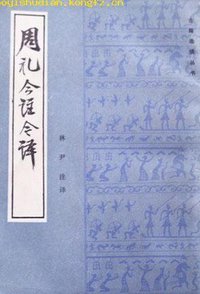 ogishudian.kongfz.cn
古籍选读丛书
周礼今注今译
林尹注译